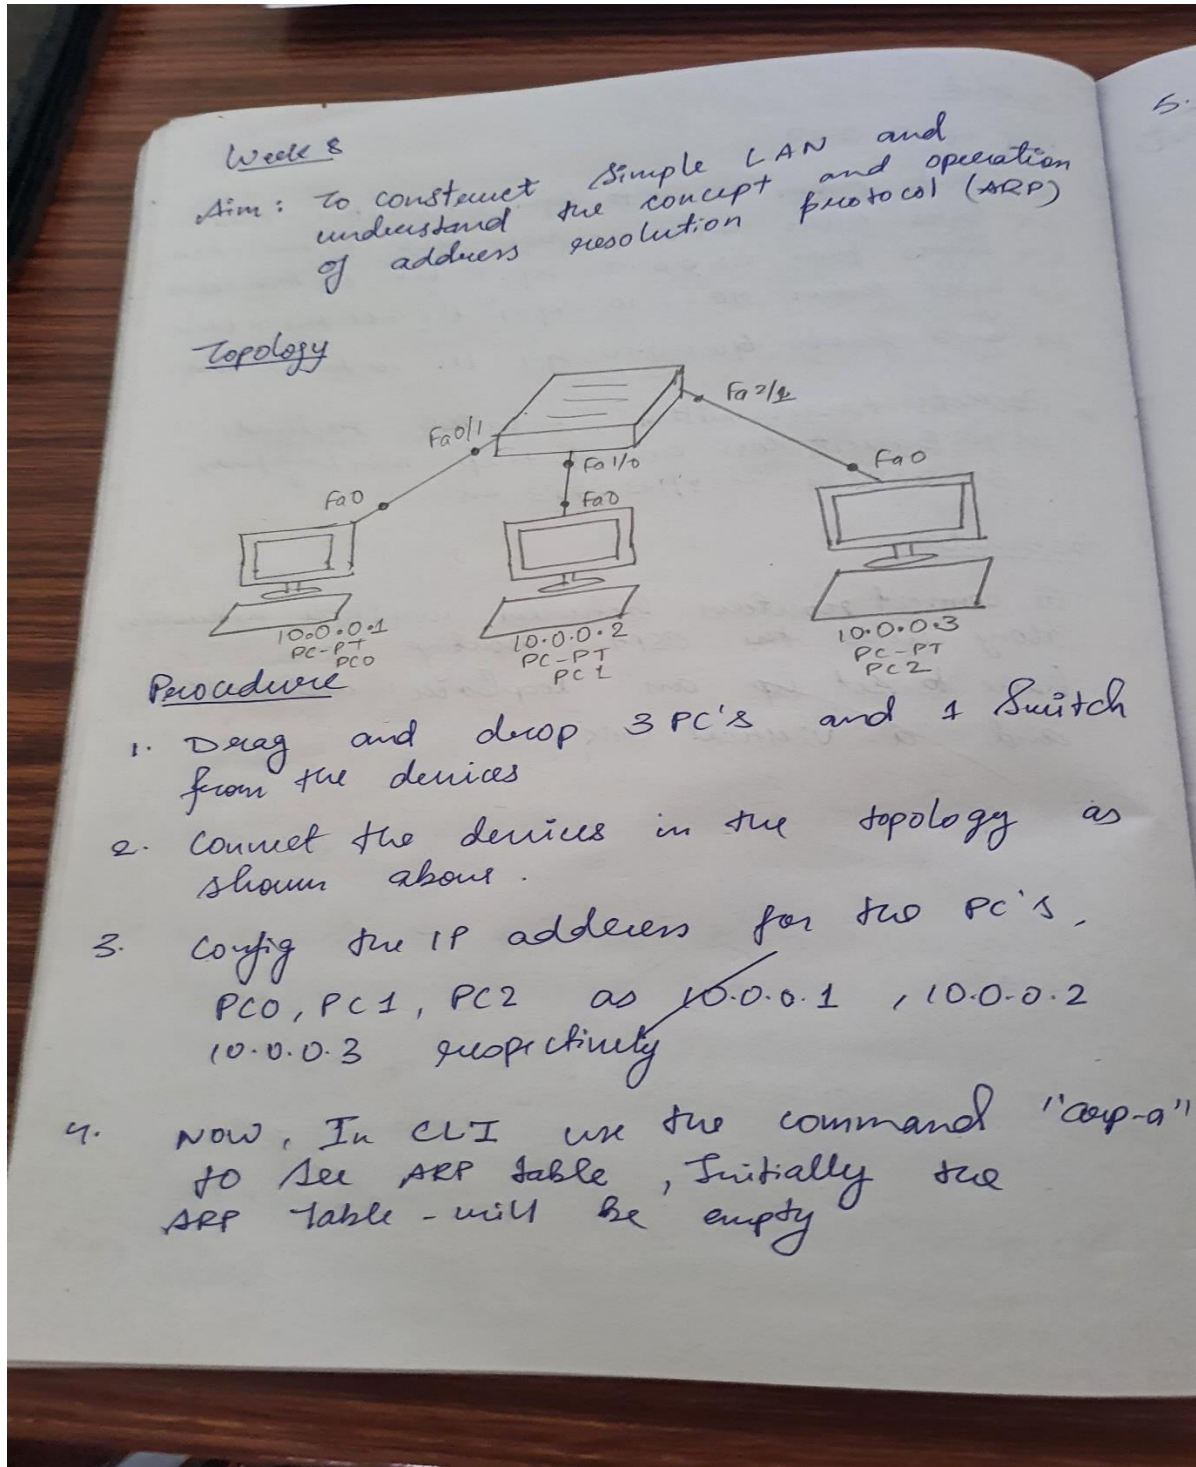 5.
Week 8
Aim: To construct simple LAN and
understand the concept and operation
of address resolution protocol (ARP)
Topology
Fa0/1
Fa2/1
Fa1/0
Fa0
Fa0
Fa0
10.0.0.1
PC-PT
PC0
10.0.0.2
PC-PT
PC1
10.0.0.3
PC-PT
PC2
Procedure
1. Drag and drop 3 PC's and 1 Switch
from the devices
2. Connect the devices in the topology as
shown above.
3. Config the IP address for the PC's,
PC0, PC1, PC2 as 10.0.0.1, 10.0.0.2
10.0.0.3 respectively
4. Now, In CLI use the command "arp-a"
to see ARP table, Initially the
ARP Table - will be empty